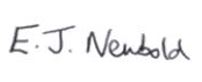 E. J. Newbold